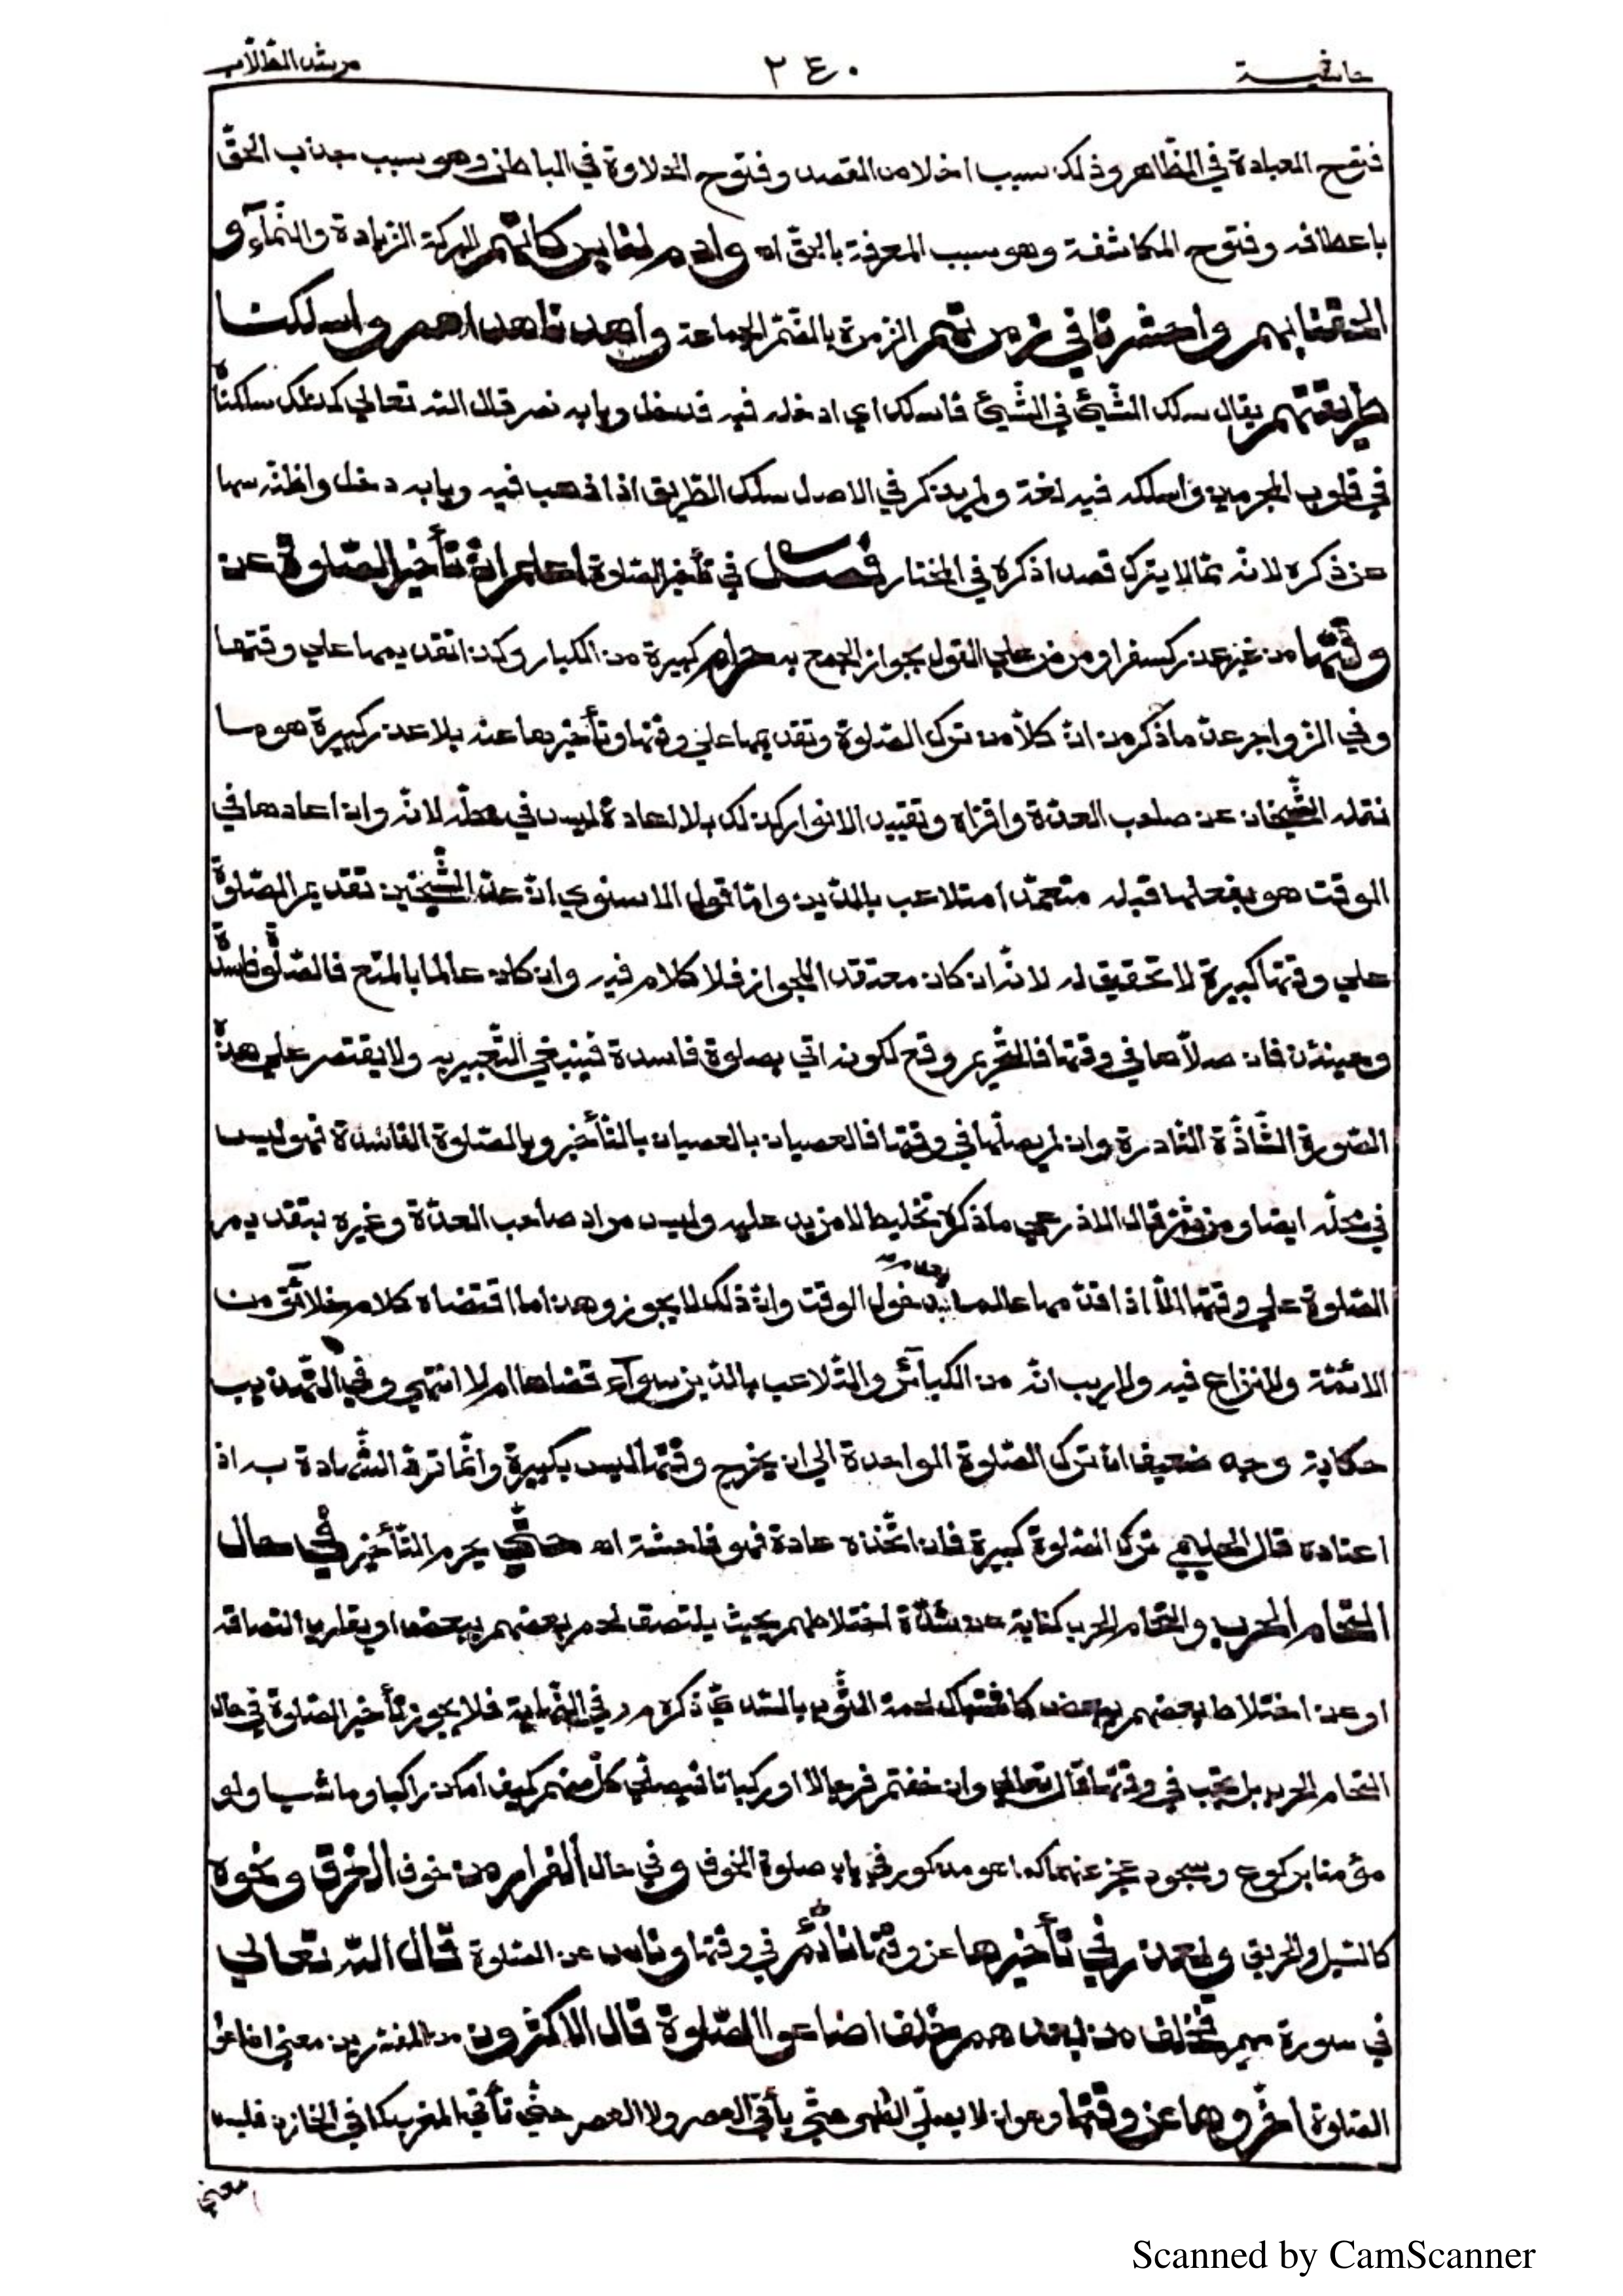 حاشية
٢٤٠
مرشد الطلاب
فتوح العبادة في الظاهر وذلك سبب اخلاص القصد وفتوح الحلاوة في الباطن وهو سبب جذب الحق
باعطافه وفتوح المكاشفة وهو سبب المعرفة بالحق اه وادم لنا بركاتهم البركة الزيادة والنمآء و
الحقنا بهم واحشرنا في زمرتهم الزمرة بالضم الجماعة واهدنا هداهم واسلكنا
طريقتهم يقال سلك الشيئ في الشيئ فانسلك اي ادخله فيه فدخل وبابه نصر قال الله تعالي كذلك سلكناه
في قلوب المجرمين واسلكه فيه لغة ولم يذكر في الاصل سلك الطريق اذا ذهب فيه وبابه دخل واظنه سها
عن ذكره لانه مما لا يترك قصدا ذكره في المختار فصل في تأخير الصلوة اعلم ان تأخير الصلوة عن
وقتها من غير عذر كسفر او مرض علي القول بجواز الجمع به حرام كبيرة من الكبار وكذا تقديمها علي وقتها
وفي الزواجر عد ما ذكر من ان كلا من ترك الصلوة وتقديمها علي وقتها وتأخيرها عنه بلا عذر كبيرة هو ما
نقله الشيخان عن صاحب العدة واقراه وتقييد الانوار كذلك بلا اعادة ليس في محله لانه وان اعادها في
الوقت هو بفعلها قبله متعمدا متلاعب بالدين واما قول الاسنوي ان عد الشيخين تقديم الصلوة
علي وقتها كبيرة لا تحقيق له لانه ان كان معتقدا للجواز فلا كلام فيه وان كان عالما بالمنع فالصلوة فاسدة
وحينئذ فان صلاها في وقتها فالتحريم وقع لكونه اتي بصلوة فاسدة فينبغي التعبير به ولا يقتصر علي هذه
الصورة الشاذة النادرة وان لم يصلها في وقتها فالعصيان بالعصيان بالتأخير وبالصلوة الفاسدة فهو ليس
في محله ايضا ومن ثم قال الاذرعي ما ذكره تخليط لا مزيد عليه وليس مراد صاحب العدة وغيره بتقديم
الصلوة علي وقتها الا اذا قدمها عالما بدخول الوقت وان ذلك لا يجوز وهذا ما اقتضاه كلام خلائق من
الائمة ولا نزاع فيه ولا ريب انه من الكبائر والتلاعب بالدين سوآء قضاها ام لا انتهي وفي التهذيب
حكاية وجه ضعيف ان ترك الصلوة الواحدة الي ان يخرج وقتها ليس بكبيرة وانما ترد الشهادة به اذ
اعتاده قال الحليمي ترك الصلوة كبيرة فان اتخذه عادة فهو فاحشة اه حتي يحرم التأخير في حال
التحام الحرب والتحام الحرب كناية عن شدة اختلاطهم بحيث يلتصق لحم بعضهم ببعض او يقارب التصاقه
او عن اختلاط بعضهم ببعض كاشتباك لحمة الثوب بالسدي ذكره م ر في النهاية فلا يجوز تأخير الصلوة في حال
التحام الحرب بل تجب في وقتها قال تعالي وان خفتم فرجالا او ركبانا فيصلي كل منهم كيف امكن راكبا وماشيا ولو
مؤمنا بركوع وسجود عجز عنهما كما هو مذكور في باب صلوة الخوف وفي حال الفرار من خوف الغرق ونحوه
كالسيل والحريق ولا عذر في تأخيرها عن وقتها نائم في وقتها وناس عن الصلوة قال الله تعالي
في سورة مريم فخلف من بعدهم خلف اضاعوا الصلوة قال الاكثرون من المفسرين معني اضاعوا
الصلوة اخروها عن وقتها وهو ان لا يصلي الظهر حتي يأتي العصر ولا العصر حتي تأتي المغرب كما في الخازن فليس
معني
Scanned by CamScanner